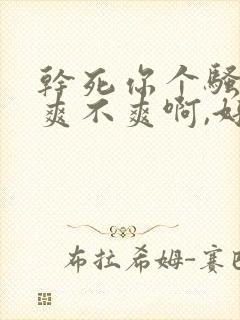 幹死你个騷
爽不爽啊,好
布拉希姆-赛巴